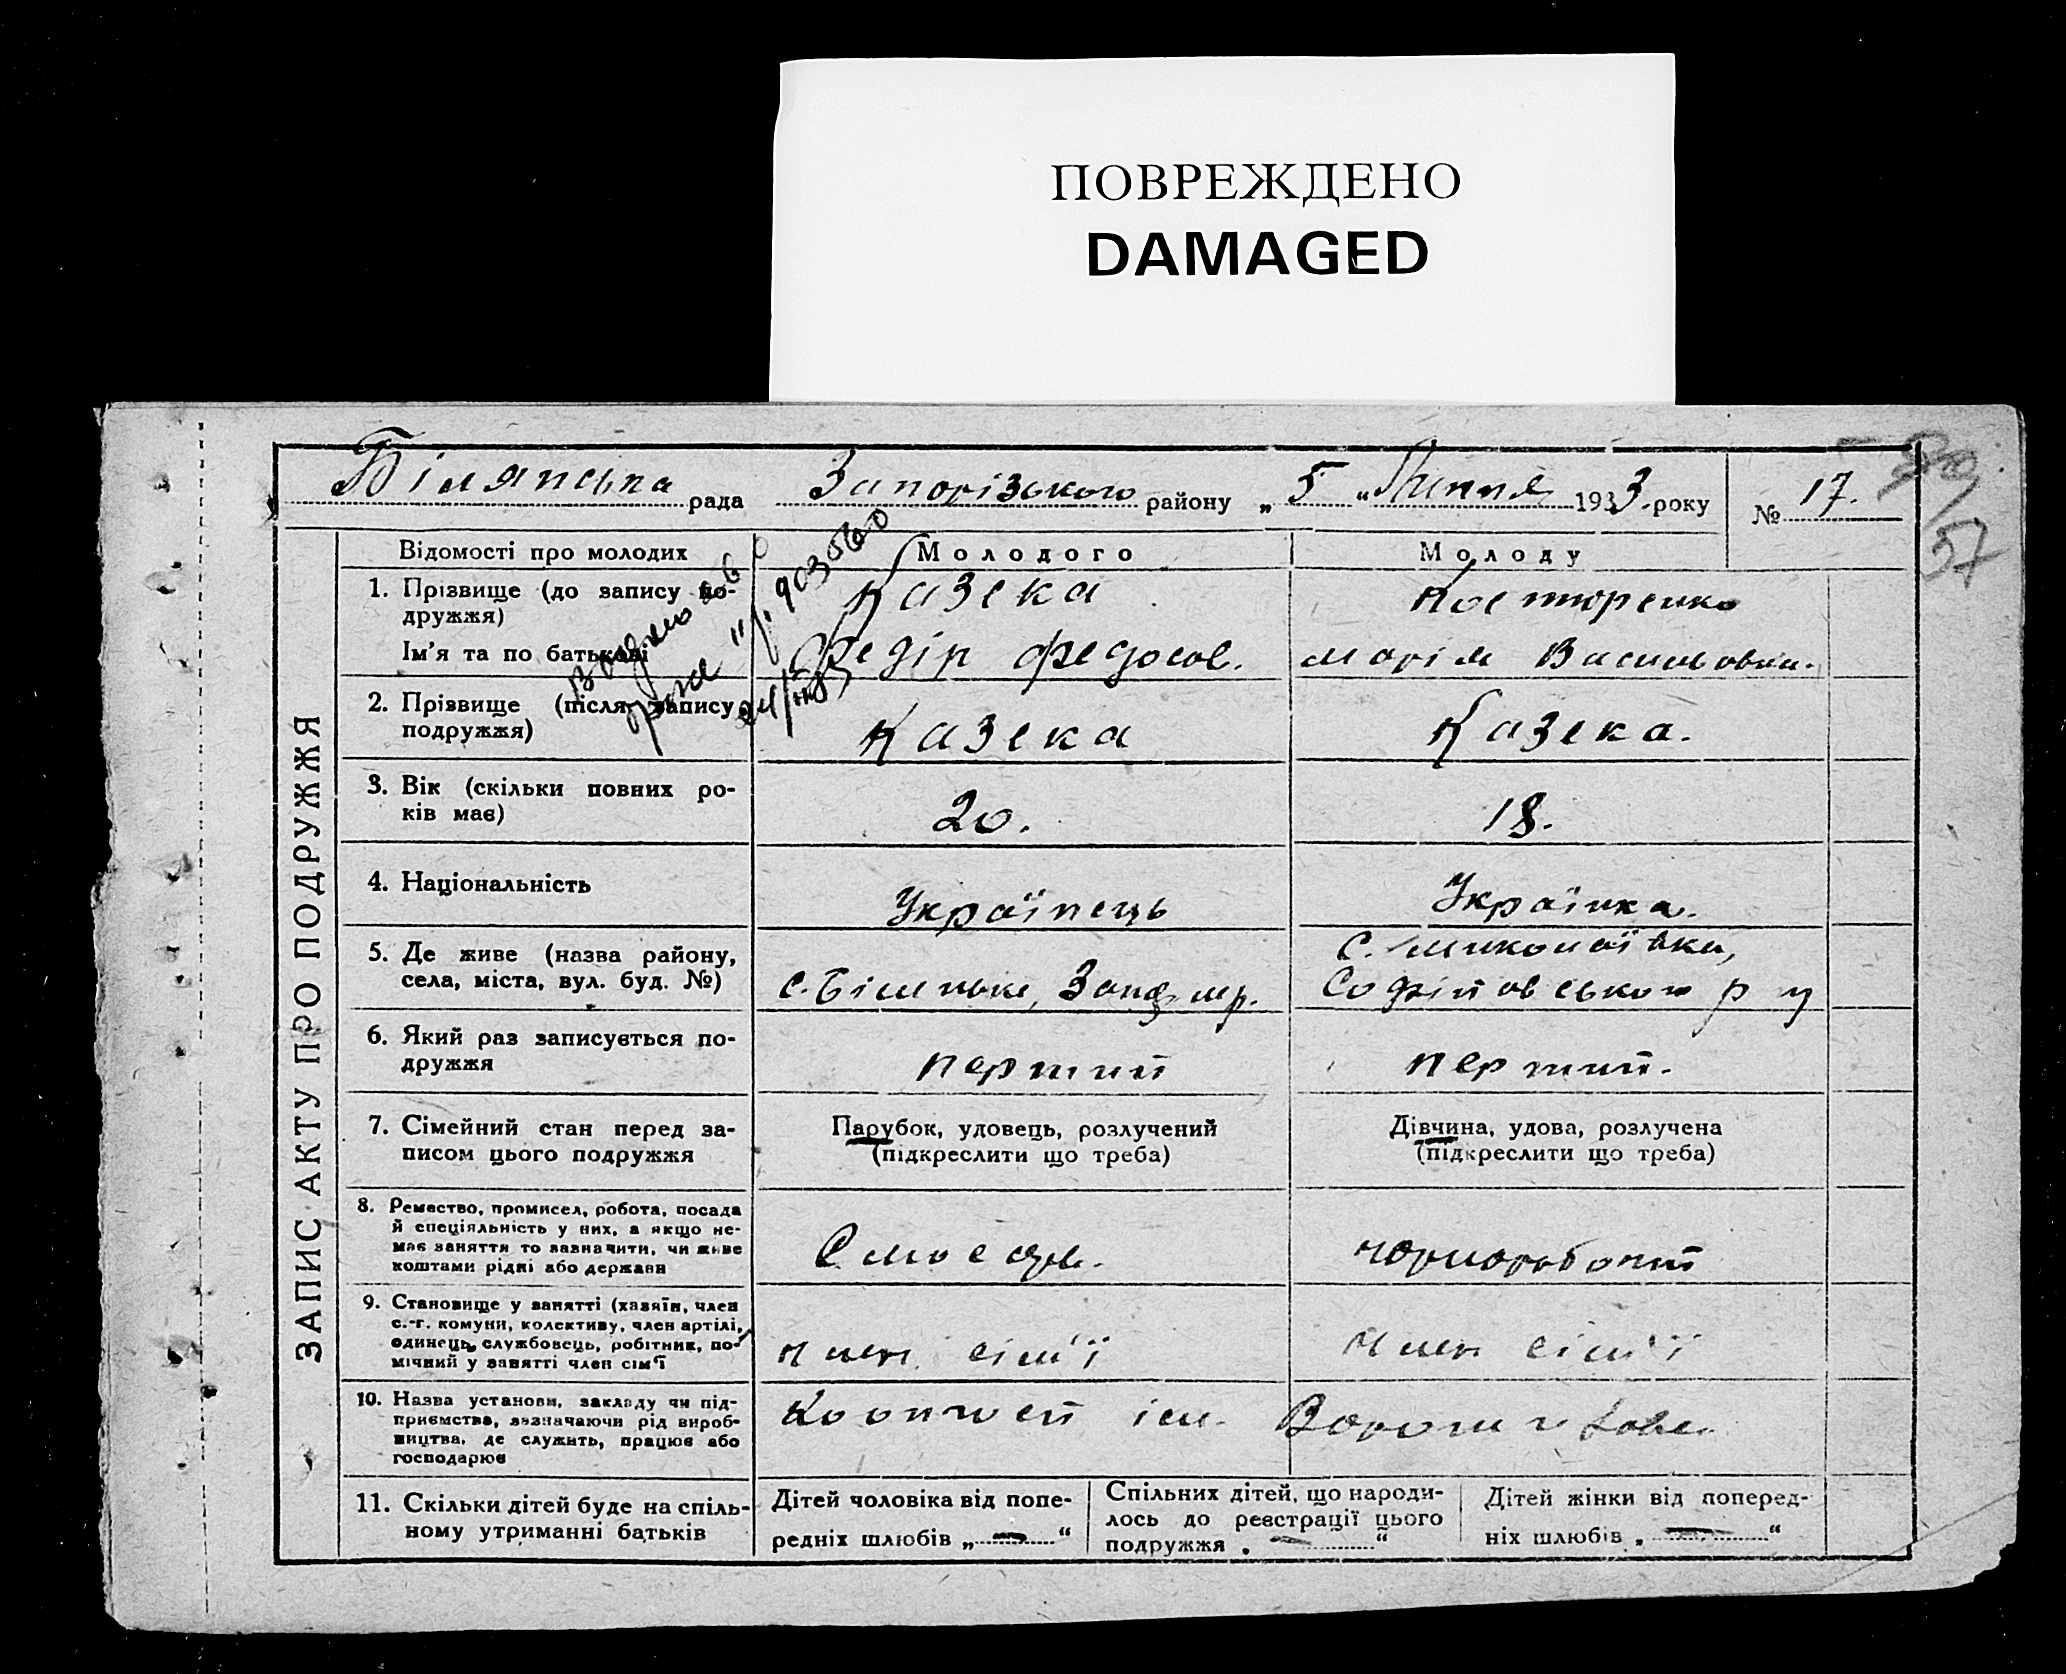 ПОВРЕЖДЕНО
DAMAGED
Білянська рада Запорізького району „5“ Липня 1933 року № 17.
57
ЗАПИС АКТУ ПРО ПОДРУЖЖЯ
Відомості про молодих Молодого Молоду
1. Прізвище (до запису по-
дружжя) Казека Костюренко
Ім'я та по батькові Федір Федосов. Марія Васильовна.
2. Прізвище (після запису
подружжя) Казека Казека.
3. Вік (скільки повних ро-
ків має) 20. 18.
4. Національність Українець Українка.
5. Де живе (назва району,
села, міста, вул. буд. №) с. Біленьке, с. Миколаївка,
Софіївського р у
6. Який раз записується по-
дружжя перший перший.
7. Сімейний стан перед за-
писом цього подружжя
Парубок, удовець, розлучений
(підкреслити що треба)
Дівчина, удова, розлучена
(підкреслити що треба)
8. Ремество, промисел, робота, посада
й спеціяльність у них, а якщо не-
має заняття то зазначити, чи живе
коштами рідні або держави
чорноробочий
9. Становище у занятті (хазяїн, член
с.-г. комуни, колективу, член артілі,
одинець, службовець, робітник, по-
мічний у занятті член сім'ї
член сім'ї член сім'ї
10. Назва установи, закладу чи під-
приємства, зазначаючи рід вироб-
ництва, де служить, працює або
господарює
ім. Ворошилова
11. Скільки дітей буде на спіль-
ному утриманні батьків
Дітей чоловіка від попе-
редніх шлюбів „—“
Спільних дітей, що народи-
лось до реєстрації цього
подружжя „—“
Дітей жінки від поперед-
ніх шлюбів „—“